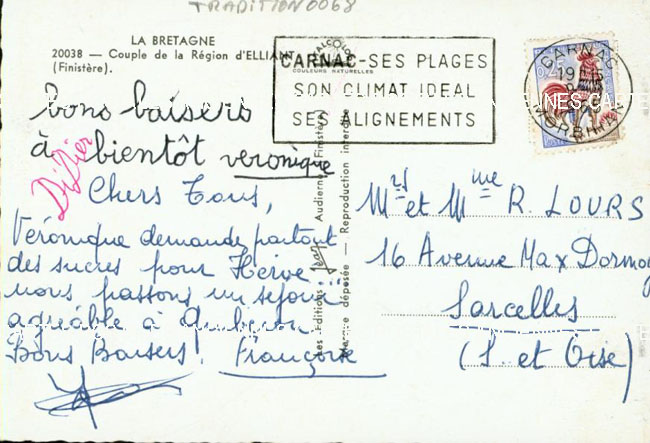 TRADITION0068
LA BRETAGNE
20038 — Couple de la Région d'ELLIANT
(Finistère).
COULEURS NATURELLES
CARNAC-SES PLAGES
SON CLIMAT IDEAL
SES ALIGNEMENTS
CARNAC
MORBIHAN
bons baisers
à bientôt veronique
Didier
Chers Tous,
Véronique demande partout
des sucres pour Hervé...
nous passons un séjour
agréable à Quiberon
Bons Baisers. Françoise
Les Editions Jean Audierne Finistère
Marque déposée — Reproduction interdite
Mr et Mme R. LOURS
16 Avenue Max Dormoy
Sarcelles
(S. et Oise)